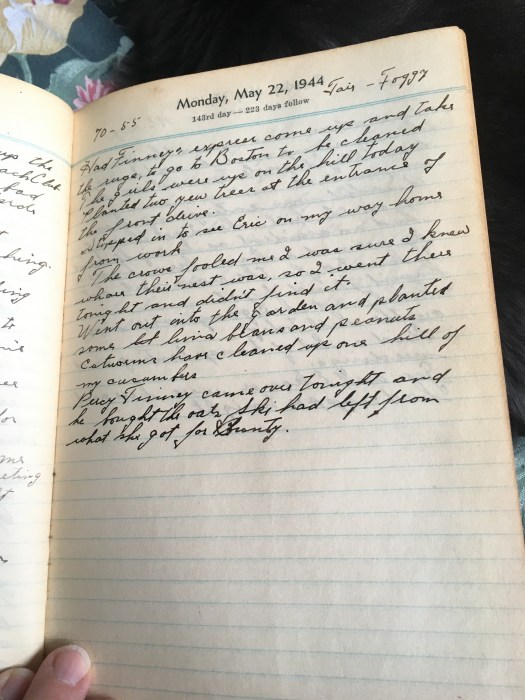 Monday, May 22, 1944
143rd day — 223 days follow
70-55
Fair - Foggy
Had Finneys express come up and take
the rugs, to go to Boston to be cleaned
The girls were up on the hill today
Planted two yew trees at the entrance of
the front drive.
Stopped in to see Eric on my way home
from work
The crows fooled me I was sure I knew
whare their nest was, so I went there
tonight and didn't find it.
Went out into the garden and planted
some lima blans and peanuts
Cutworms have cleaned up one hill of
my cucumbers
Percy Finney came over tonight and
he bought the oats Ski had left from
what she got for Bunty.
up the
each Club
had
to
for
eting